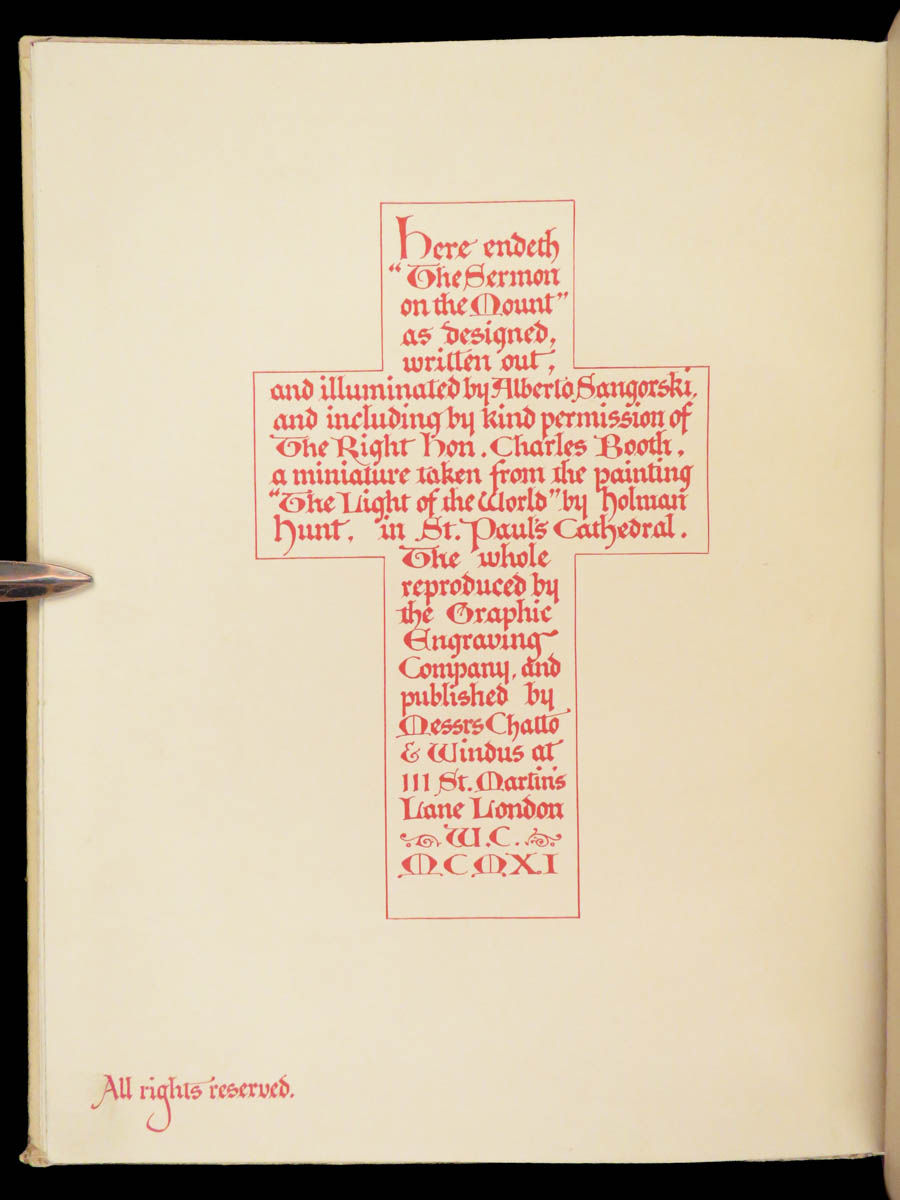 Here endeth
“The Sermon
on the Mount”
as designed,
written out,
and illuminated by Alberto Sangorski,
and including by kind permission of
The Right Hon. Charles Booth,
a miniature taken from the painting
“The Light of the World” by Holman
Hunt, in St. Paul's Cathedral.
The whole
reproduced by
the Graphic
Engraving
Company, and
published by
Messrs Chatto
& Windus at
111 St. Martin's
Lane London
W.C.
MCMXI
All rights reserved.